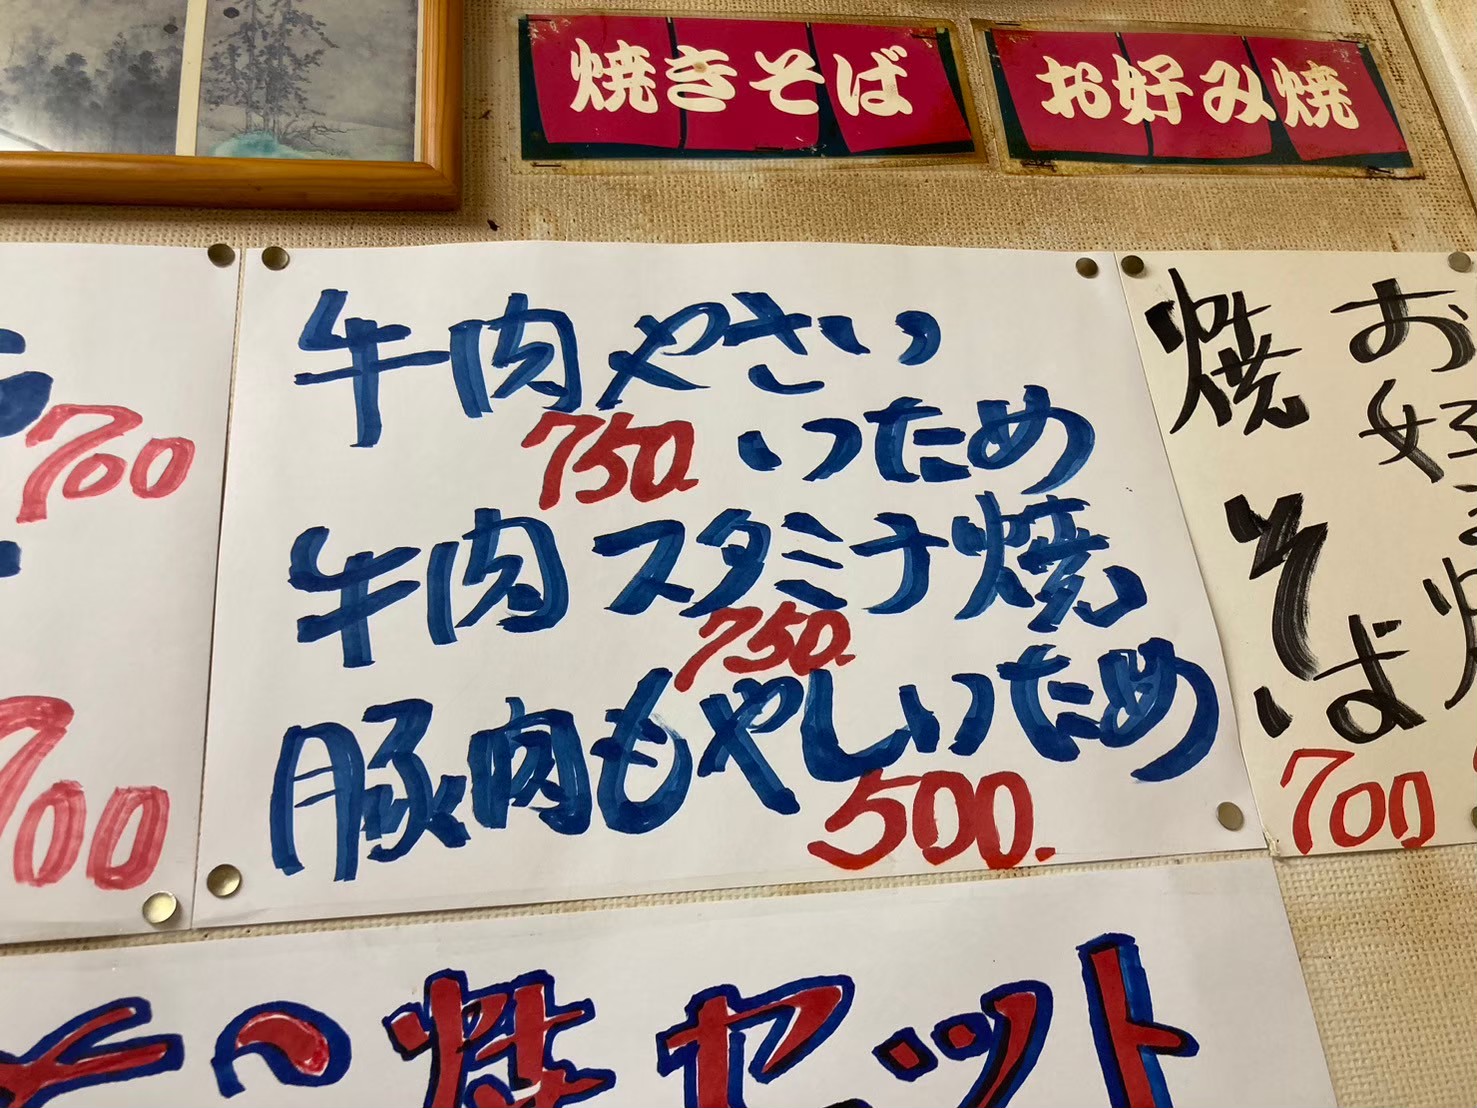 焼きそば
お好み焼
700
700
牛肉やさい
いため
750.
牛肉スタミナ焼
750.
豚肉もやしいため
500.
お好み焼
焼そば
700
焼セット